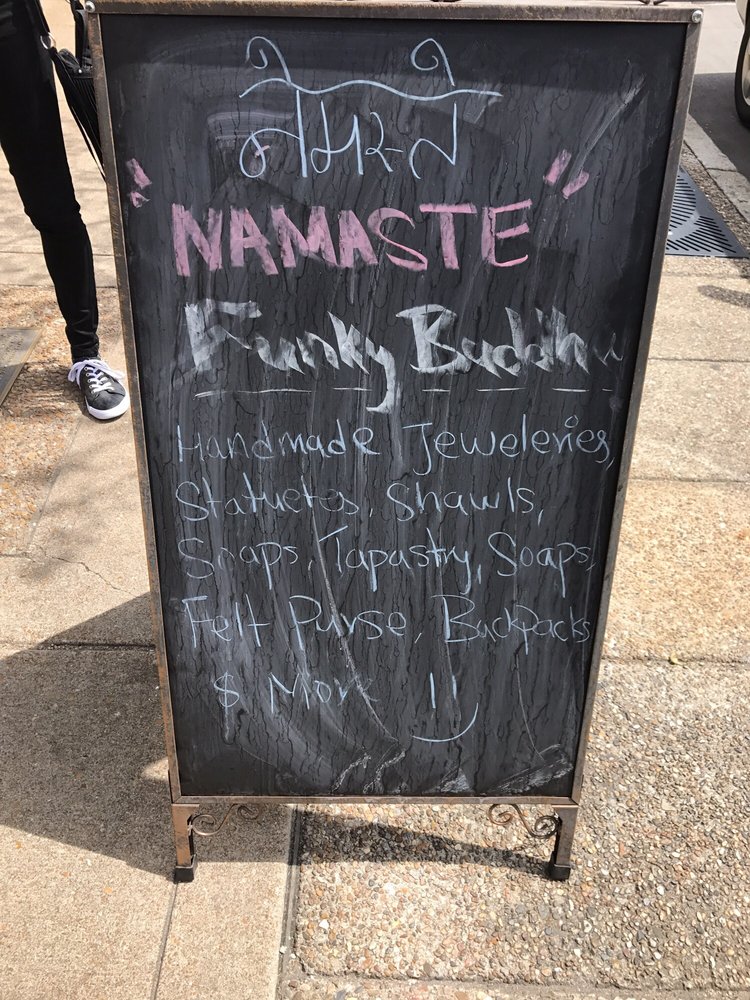 नमस्ते
"NAMASTE"
Funky Buddha
Handmade Jeweleries,
Statuetes, Shawls,
Soaps, Tapastry, Soaps,
Felt Purse, Backpacks
& More